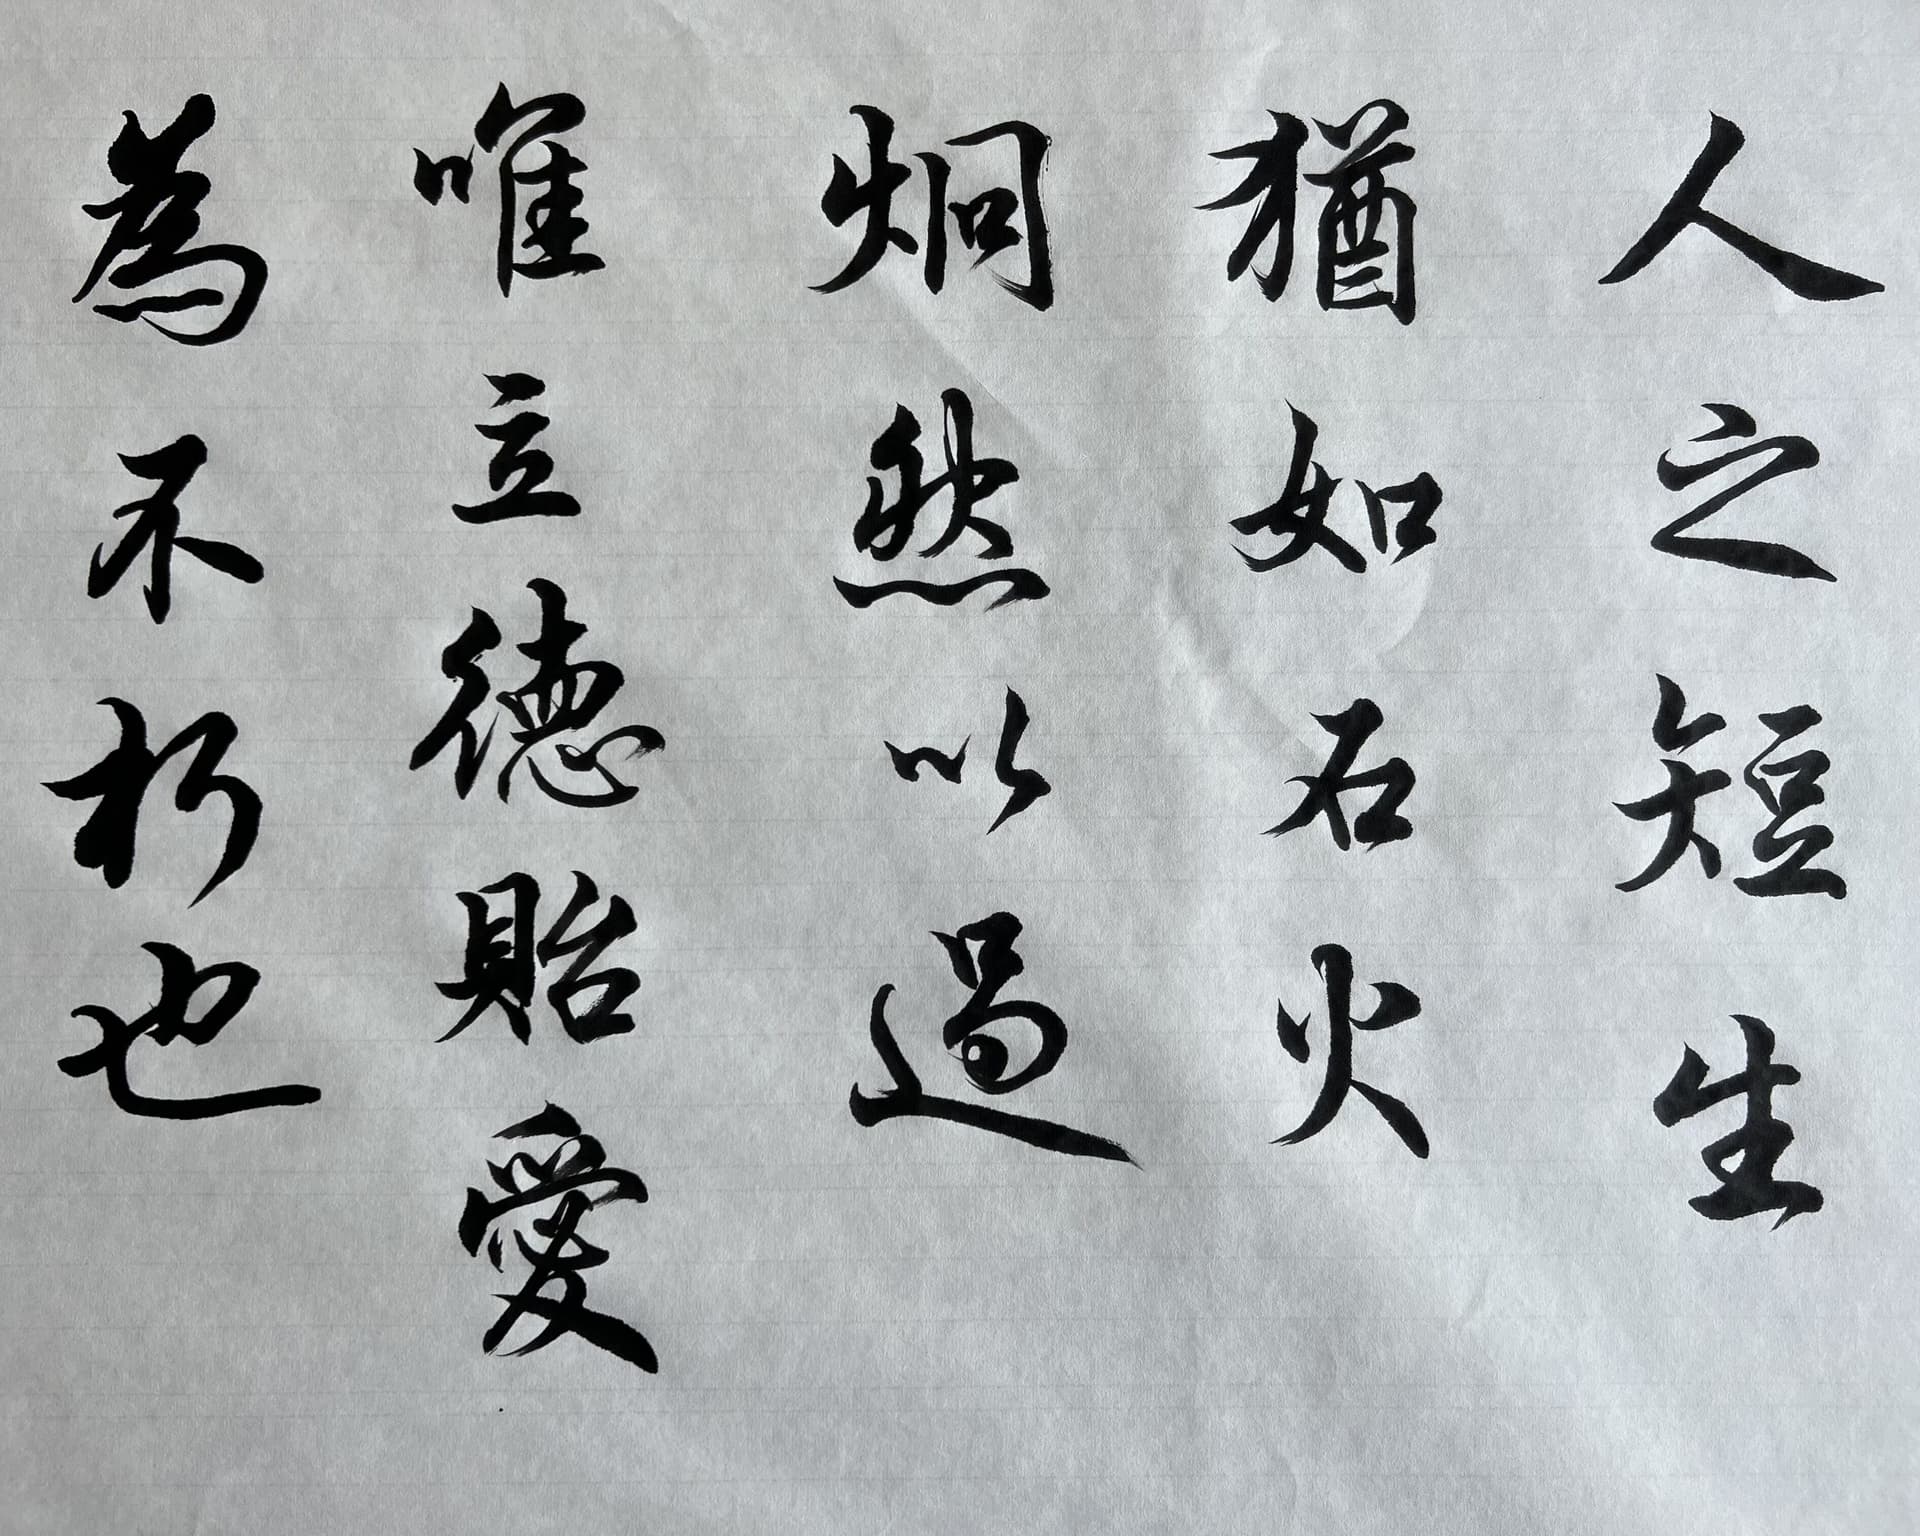 人之短生
猶如石火
炯然以過
唯立德貽愛
為不朽也